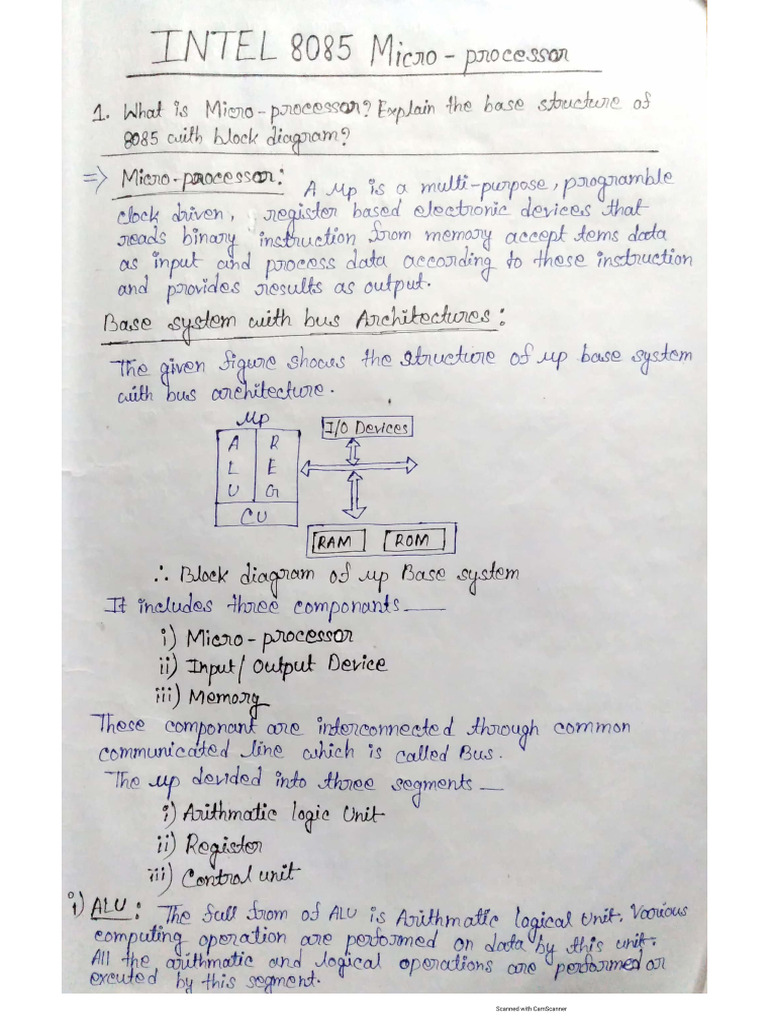 INTEL 8085 Micro-processor
1. What is Micro-processor? Explain the base structure of
8085 with block diagram?
=> Micro-processor: A Mp is a multi-purpose, programble
clock driven, register based electronic devices that
reads binary instruction from memory accept tems data
as input and process data according to these instruction
and provides results as output.
Base system with bus Architectures:
The given figure shows the structure of up base system
with bus architecture.
Mp
I/O Devices
A R
L E
U G
CU
RAM ROM
∴ Block diagram of up Base system
It includes three componants—
i) Micro-processor
ii) Input/Output Device
iii) Memory
These componant are interconnected through common
communicated line which is called Bus.
The up devided into three segments—
i) Arithmatic logic Unit
ii) Register
iii) Control unit
i) ALU: The full from of ALU is Arithmatic logical Unit. Various
computing operation are performed on data by this unit.
All the arithmatic and logical operations are performed or
excuted by this segment.
Scanned with CamScanner